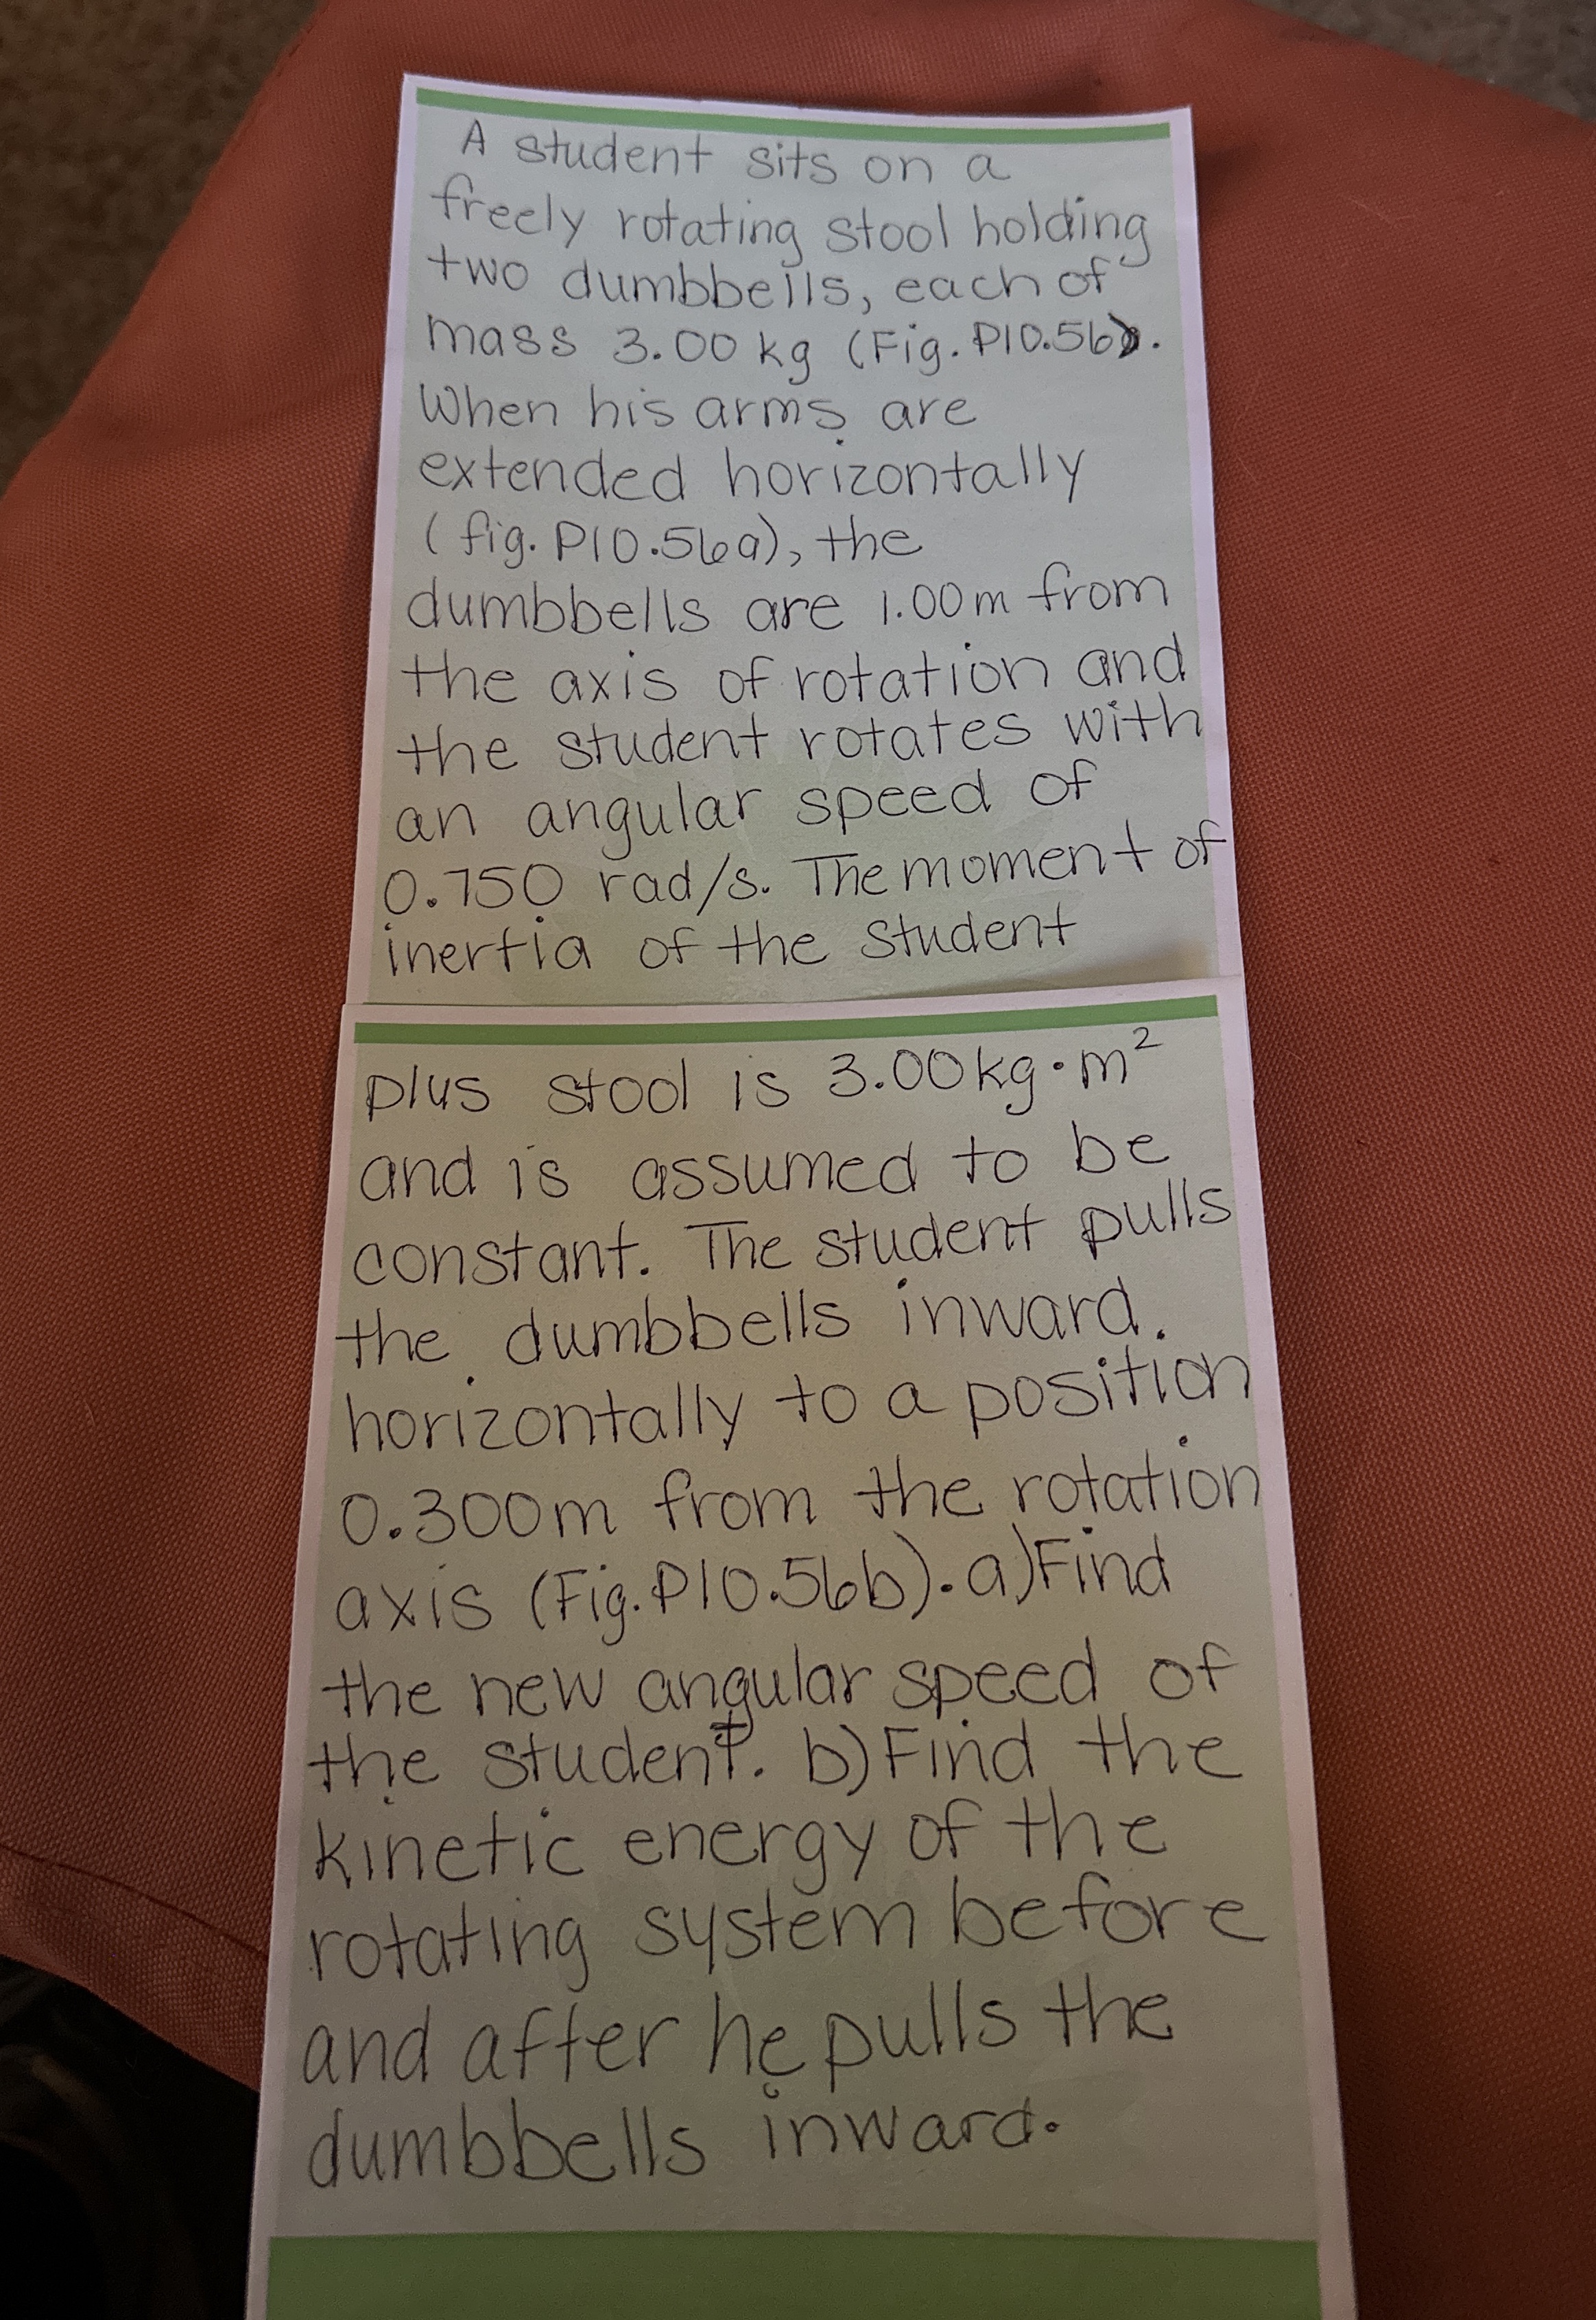 A student sits on a
freely rotating stool holding
two dumbbells, each of
mass 3.00 kg (Fig. P10.56).
When his arms are
extended horizontally
(fig. P10.56a), the
dumbbells are 1.00m from
the axis of rotation and
the student rotates with
an angular speed of
0.750 rad/s. The moment of
inertia of the student
plus stool is 3.00kg·m²
and is assumed to be
constant. The student pulls
the dumbbells inward
horizontally to a position
0.300m from the rotation
axis (Fig. P10.56b). a)Find
the new angular speed of
the student. b)Find the
kinetic energy of the
rotating system before
and after he pulls the
dumbbells inward.